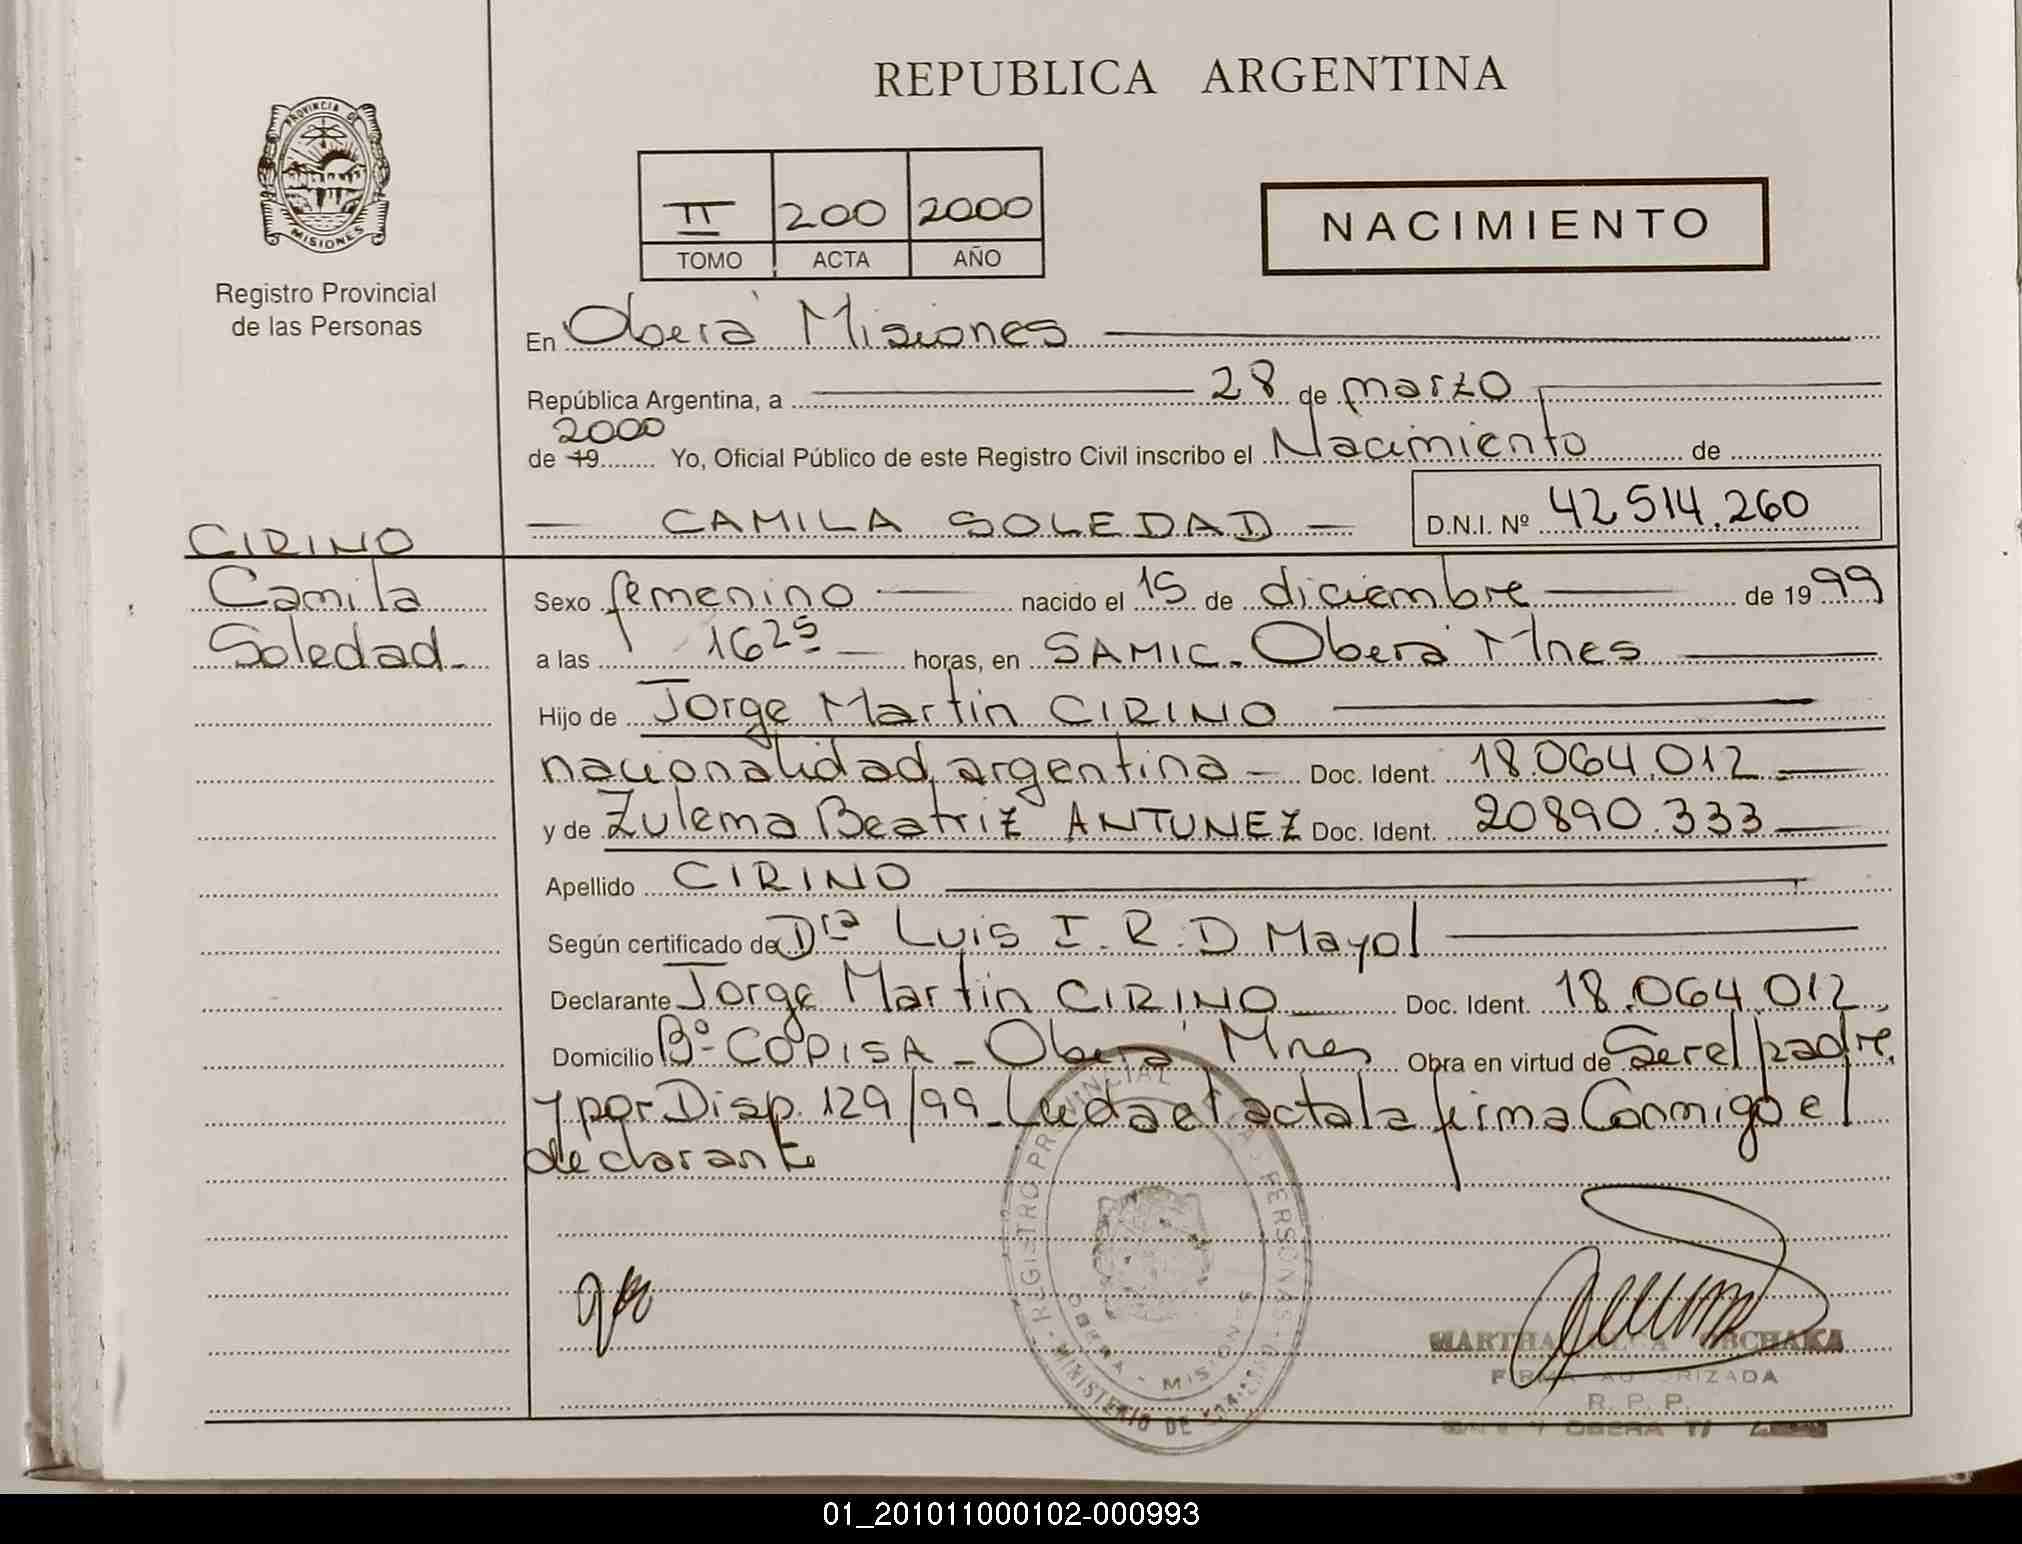 REPUBLICA ARGENTINA
PROVINCIA DE MISIONES
Registro Provincial
de las Personas
II 200 2000
TOMO ACTA AÑO
NACIMIENTO
En Oberá Misiones
República Argentina, a 28 de marzo
2000
de 19 Yo, Oficial Público de este Registro Civil inscribo el Nacimiento de
CIRINO
CAMILA SOLEDAD D.N.I. Nº 42514.260
Camila
Sexo femenino nacido el 15 de diciembre de 1999
Soledad
a las 1625 horas, en SAMIC. Oberá Mnes
Hijo de Jorge Martin CIRINO
nacionalidad argentina Doc. Ident. 18.064.012
y de Zulema Beatriz ANTUNEZ Doc. Ident. 20890.333
Apellido CIRINO
Según certificado de Dra Luis I.R.D Mayol
Declarante Jorge Martin CIRINO Doc. Ident. 18.064.012
Domicilio Bº COPISA - Oberá Mnes Obra en virtud de Ser el padre
y por Disp. 129/99 - Leida el acta la firma Conmigo el
declarante
REGISTRO PROVINCIAL PERSONAS
OBERA - MISIONES
MINISTERIO DE
MARTHA OBCHAKA
FIRMA AUTORIZADA
R. P. P.
OBERA
01_201011000102-000993